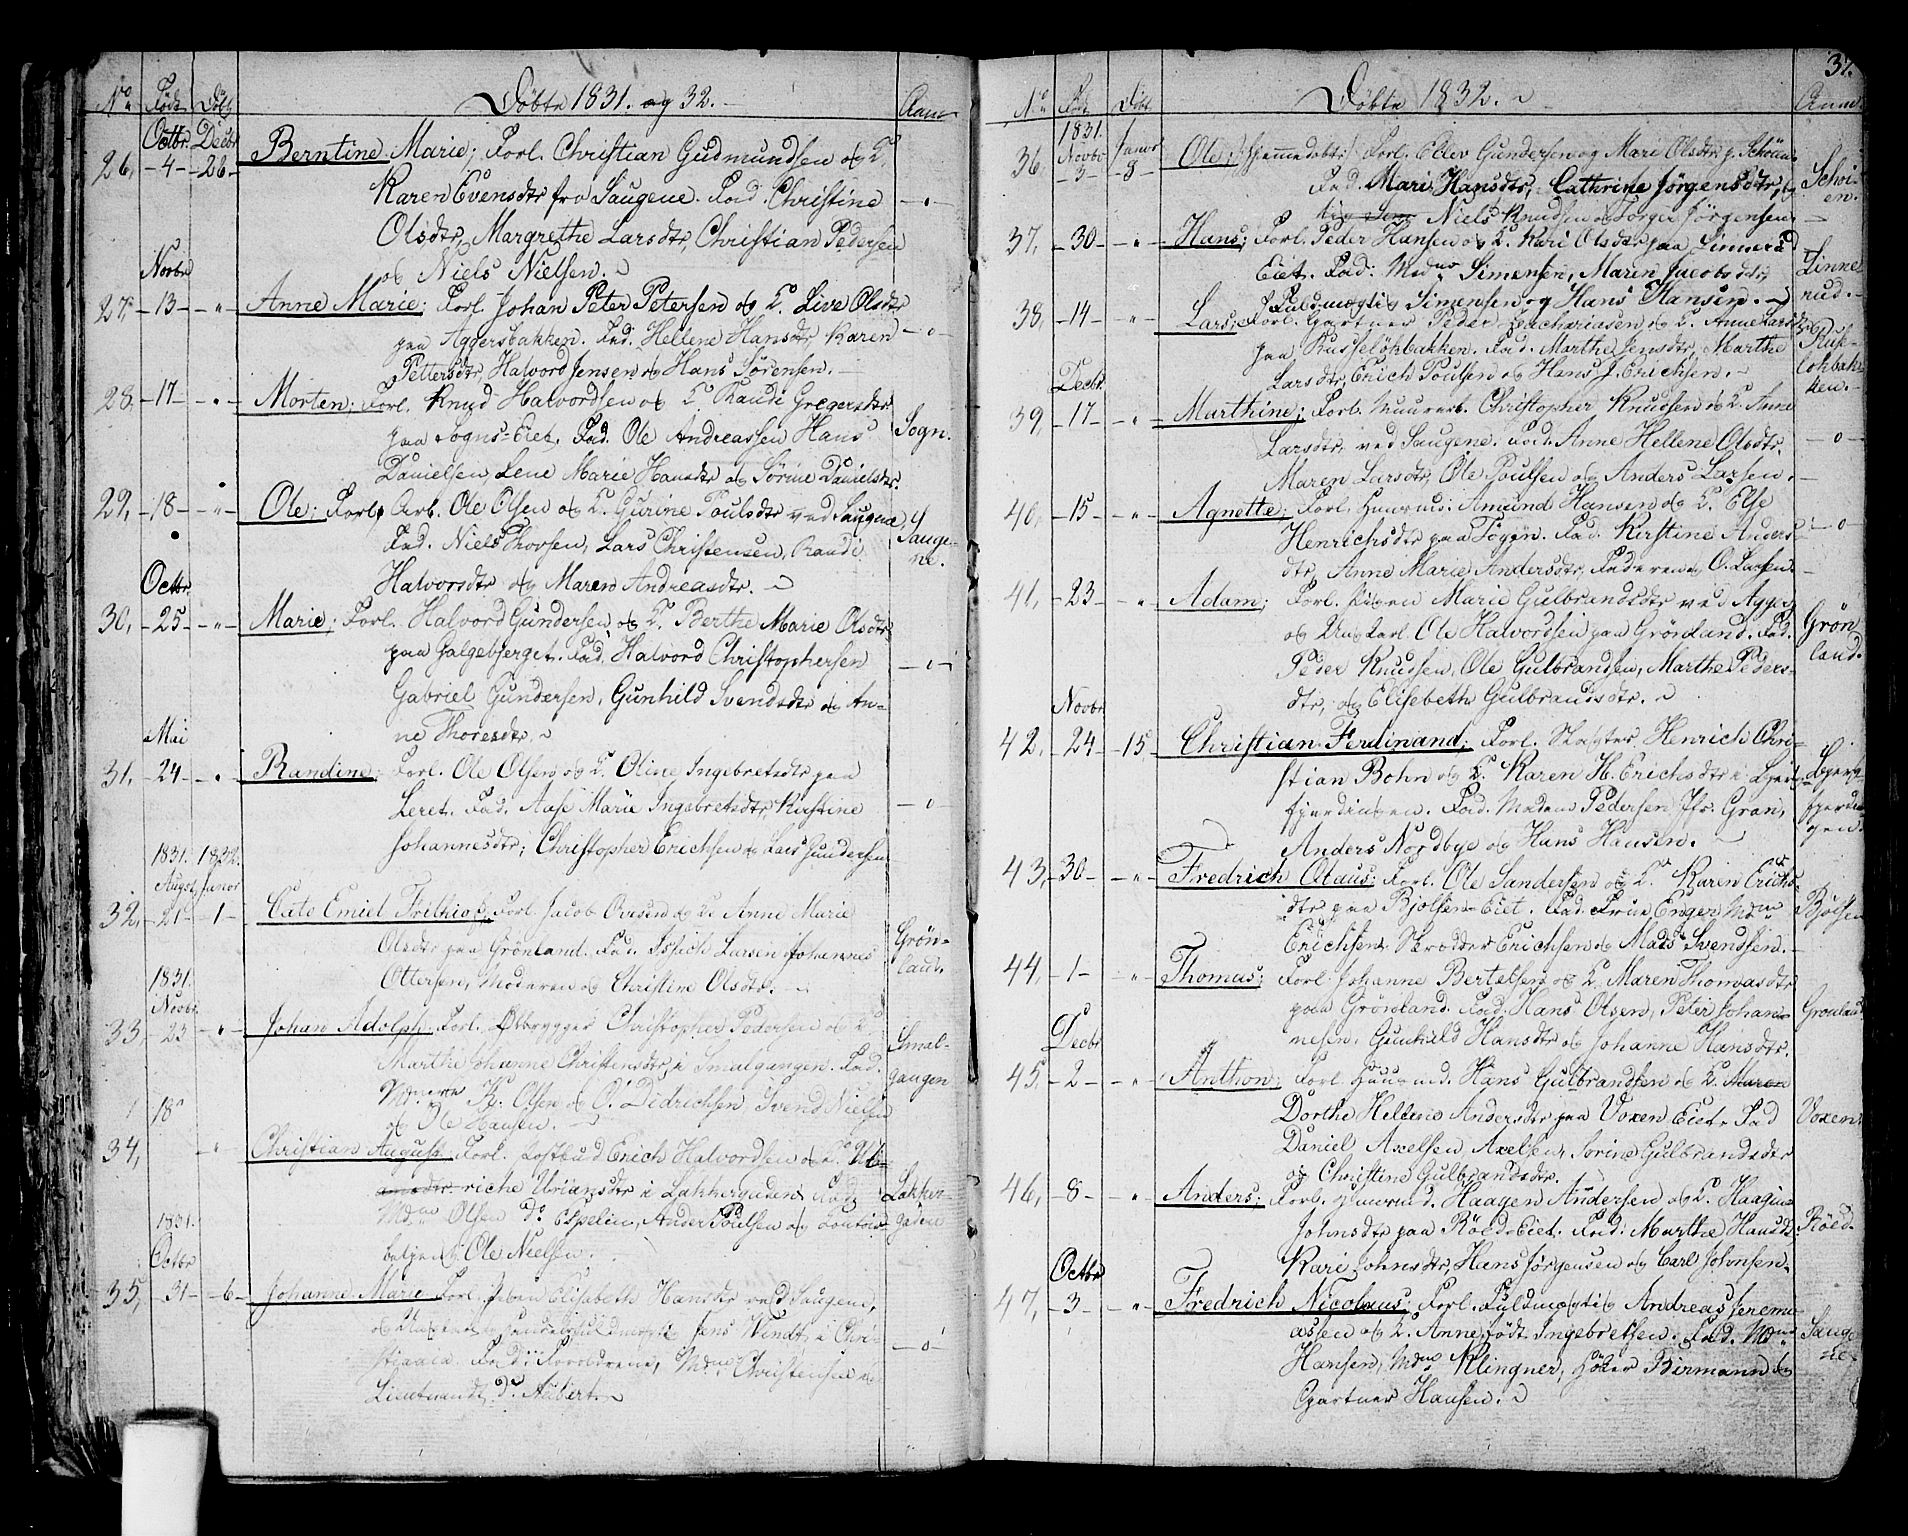 No. Født Døbt Døbte 1831. og 32. Anm
Octbr. Decbr
26, -4- -26- Berntine Marie; Forl. Christian Gudmundsen og K.
Karen Evensdtr fra Saugene. Fad. Christine
Olsdtr, Margrethe Larsdtr, Christian Pedersen
og Niels Nielsen.
Novbr
27, -13- -"- Anne Marie; Forl. Johan Peter Petersen og K. Live Olsdtr
paa Aggersbakken. Fad. Hellene Hansdtr Karen -o-
Pettersdtr Halvord Jensen og Hans Sørensen.
28, -17- -"- Morten; Forl. Knud Halvordsen og K. Randi Gregersdtr
paa Sogns-Eiet, Fad. Ole Andreassen Hans Sogn.
Danielsen, Lene Marie Hansdtr og Sørine Danielsdtr.
29, -18- -"- Ole; Forl. Arb. Ole Olsen og K. Gurine Poulsdtr ved Saugene,
Fad. Niels Thovsen, Lars Christensen, Randi Saugene.
Halvorsdtr og Maren Andreasdtr.
Octbr.
30, -25- -"- Marie; Forl. Halvord Gundersen og K. Berthe Marie Olsdtr
paa Galgebjerget. Fad. Halvord Christophersen
Gabriel Gundersen, Gunhild Svendsdtr og An-
ne Thoresdtr.
Mai
31, -24- -"- Randine; Forl. Ole Olsen og K. Oline Ingebretsdtr paa
Leret. Fad. Aase Marie Ingebretsdtr, Kirstine -o-
Johannesdtr; Christopher Erichsen og Lars Gundersen
1831. 1832.
Augst. Januar
32, -21- -1- Cato Emiel Frithiof; Forl. Jacob Ovesen og K. Anne Marie
Olsdtr paa Grønland. Fad. Larsen Johannes Grøn-
Ottersen, Moderen og Christine Olsdtr. land.
1831.
Novbr
33, -23- -"- Johan Adolph; Forl. Ølbrygger Christopher Pedersen og K.
Marthe Johanne Christensdtr i Smalgangen. Fad. Smal-
Olsen og O. Didrichsen, Svend Nielsen gangen
og Ole Hansen.
18
34, -"- Christian August; Forl. Postbud Erich Halvordsen og K. Ul-
riche Uriansdtr i Lakkergaden. Fad. Lakker-
Mdm Olsen, do Espelin, Ander Poulsen og gaden
1831.
Octbr
betjent Ole Nielsen.
35, -31- -6- Johanne Marie Forl. Pigen Elisabeth Hansdtr ved Saugene,
og Ungkarl Jens Windt, i Chri-
stiania. Fad. Forældrene, Mdm Christensen og -o-
Lieutnandt d. Aubert.
37.
No. Født Døbt Døbte 1832. Anm.
1831.
Novbr Januar
36, -3- -8- Ole; (hjemmedøbt) Forl. Ellev Gundersen og Mari Olsdtr p. Schøien
Fad. Mari Hansdtr, Cathrine Jørgensdtr, Schøi-
Niels Knudsen og Torger Jørgensen en.
37, -30- -"- Hans; Forl. Peder Hansen og K. Kari Olsdtr paa Linnerud
Eiet. Fad: Mdm Simensen, Maren Jacobsdtr, Linne-
Fuldmægtig Simensen og Hans Hansen. rud.
38, -14- -"- Lars; Forl. Gartner Peder Zachariasen og K. Anne Larsdtr
paa Russeløkbakken. Fad. Marthe Jensdtr, Marthe Ruse-
Larsdtr, Erich Poulsen og Hans J. Erichsen. løkbak-
ken.
Decbr
39, -17- -"- Marthine; Forl. Muurarb. Christopher Knudsen og K. Anne
Larsdtr, ved Saugene. Fad. Anne Hellene Olsdtr, -o-
Maren Larsdtr, Ole Poulsen og Anders Larsen.
40, -15- -"- Agnette; Forl. Huusmd. Amund Hansen og K. Else
Henrichsdtr paa Tøyen. Fad. Kirstine Anders- -o-
dtr, Anne Marie Andersdtr, Faderen og O. Larsen.
41, -23- -"- Adam; Forl. Pigen Marie Gulbrandsdtr ved Agger,
og Ungkarl Ole Halvordsen paa Grønland. Fad. Grøn
Peder Knudsen, Ole Gulbrandsen, Marthe Peders- land.
dtr, og Elisebeth Gulbrandsdtr.
Novbr
42. -24- -15- Christian Ferdinand; Forl. Henrich Chri-
stian Bohn og K. Karen H. Erichsdtr i Bjerg-
fjerdingen. Fad. Madam Pedersen Jfr. Gran, fjerdin-
Anders Nordbye og Hans Hansen. gen
43, -30- -"- Fredrich Olaus; Forl. Ole Sandersen og K. Karen Erichs-
dtr paa Bjølsen-Eiet. Fad. Frue Enger Mdm Bjølsen
Erichsen Skrædder Erichsen og Mads Svendsen.
44, -1- -"- Thomas; Forl. Johanne Bertelsen og K. Maren Thomasdtr
paa Grønland. Fad. Hans Olsen, Peter Johan- Grønland
nesen, Gunhild Hansdtr og Johanne Hansdtr.
Decbr
45, -2- -"- Anthon; Forl. Huusmd. Hans Gulbrandsen og K. Maren
Dorthe Hellene Andersdtr paa Voxen Eiet. Fad Voxen.
Daniel Axelsen Axelsen Sørine Gulbrandsdtr
og Christine Gulbrandsdtr.
46, -8- -"- Anders; Forl. Huusmd. Haagen Andersen og K. Haagine
Johnsdtr paa Røed-Eiet. Fad. Marthe Hansdtr. Røed-
Kari Johnsdtr, Hans Jørgensen og Carl Johnsen.
Octbr
47, -3- -"- Fredrich Nicolaus; Forl. Fuldmægtig Andreas Jeremi-
assen og K. Anne, født Ingebretsen. Fad. Mdm Sauge-
Hansen, Mdm Klingner, Høker Biermann og ne
Gartner Hansen.